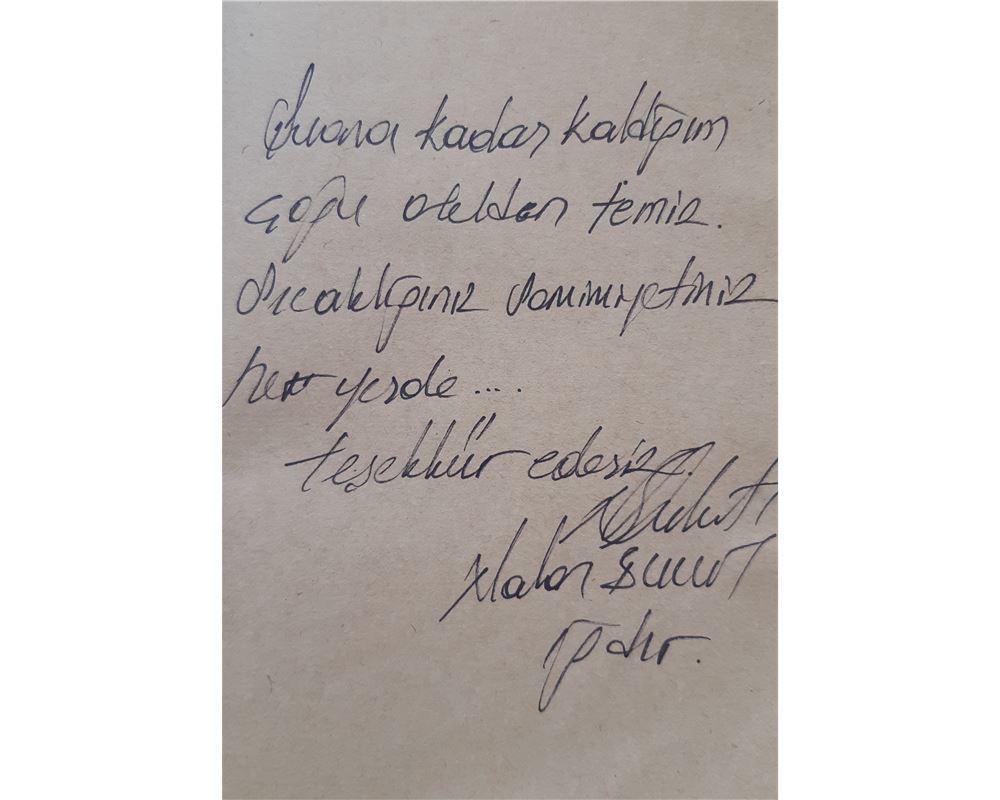 Şuana kadar kaldığım
çoğu otelden temiz.
Sıcaklığınız Samimiyetiniz
her yerde ....
teşekkür ederiz
Hakan
Iğdır.